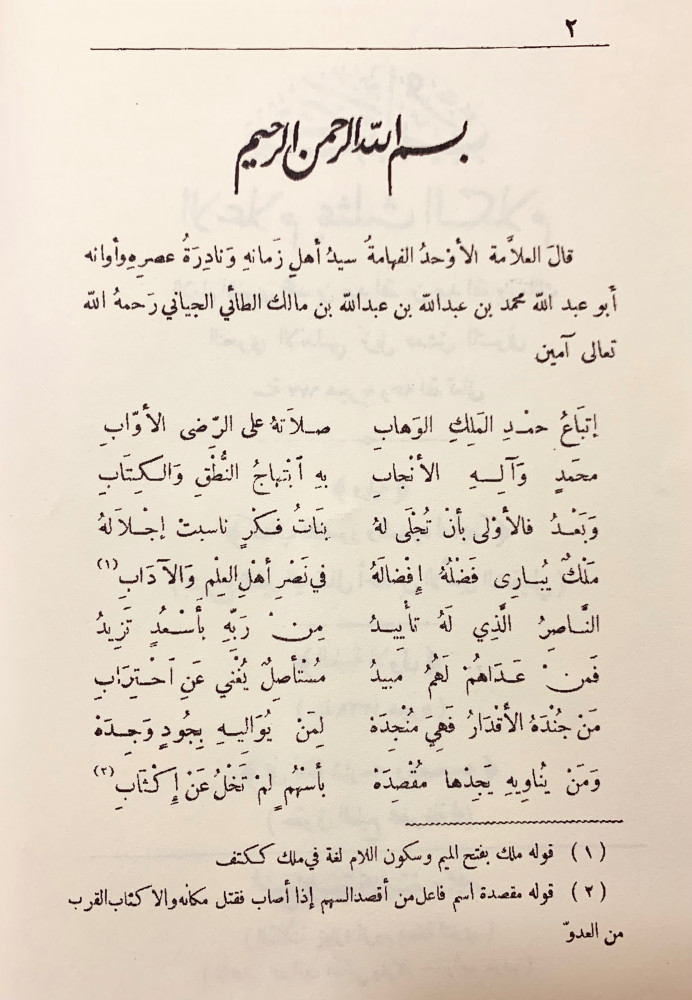 ٢
بسم الله الرحمن الرحيم
قالَ العلاَّمة الأوْحدُ الفهامةُ سيدُ أهلِ زَمانهِ وَنادِرَةُ عصرِهِ وأوانه
أبو عبد الله محمد بن عبدالله بن عبدالله بن مالك الطائي الجياني رَحمهُ الله
تعالى آمين
إتبَاعُ حمْدِ المَلِكِ الوَهابِ صلاَتهُ على الرِّضى الأوّابِ
محمَدٍ وَآلِهِ الأنْجاب بهِ ابْتهاجُ النُّطْقِ وَالكِتَابِ
وَبَعْدُ فالأوْلى بأنْ تُجْلَى لهُ بنَاتُ فكْرٍ ناسبتْ إجْلاَلهُ
مَلْكٌ يُبارِى فَضْلُهُ إفْضالَهُ في نَصْرِ أهْلِ العِلْمِ وَالآدَابِ (١)
النَّاصِرُ الَّذِي لَهُ تأْيِيدُ مِنْ رَبِّهِ بأَسْعُدٍ تَزِيدُ
فَمنْ عَدَاهُمْ لَهُمُ مُبِيدُ مُسْتأصِلٌ يُغْني عَنِ احْتِرَابِ
مَنْ جُنْدَهُ الأقْدَارُ فَهِيَ مُنْجِدَهْ لِمَنْ يُوَالِيهِ بِجُودٍ وَجِدَهْ
وَمَنْ يُناوِيهِ يَجِدْها مُقْصِدَهْ بأسْهُمٍ لمْ تَخْلُ عَنْ إكْثَابِ (٢)
( ١ ) قوله ملك بفتح الميم وسكون اللام لغة في ملك ككتف
( ٢ ) قوله مقصدة اسم فاعل من أقصد السهم إذا أصاب فقتل مكانه والاكثاب القرب
من العدوّ